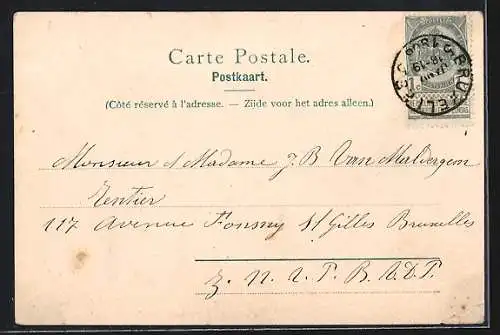 Carte Postale.
Postkaart.
(Côté réservé à l'adresse. — Zijde voor het adres alleen.)
BRUXELLES
Monsieur & Madame J. B Van Malderegem
Rentier
117 Avenue Fonsny St Gilles Bruxelles
Z. N. U. P. B. V. D. P.